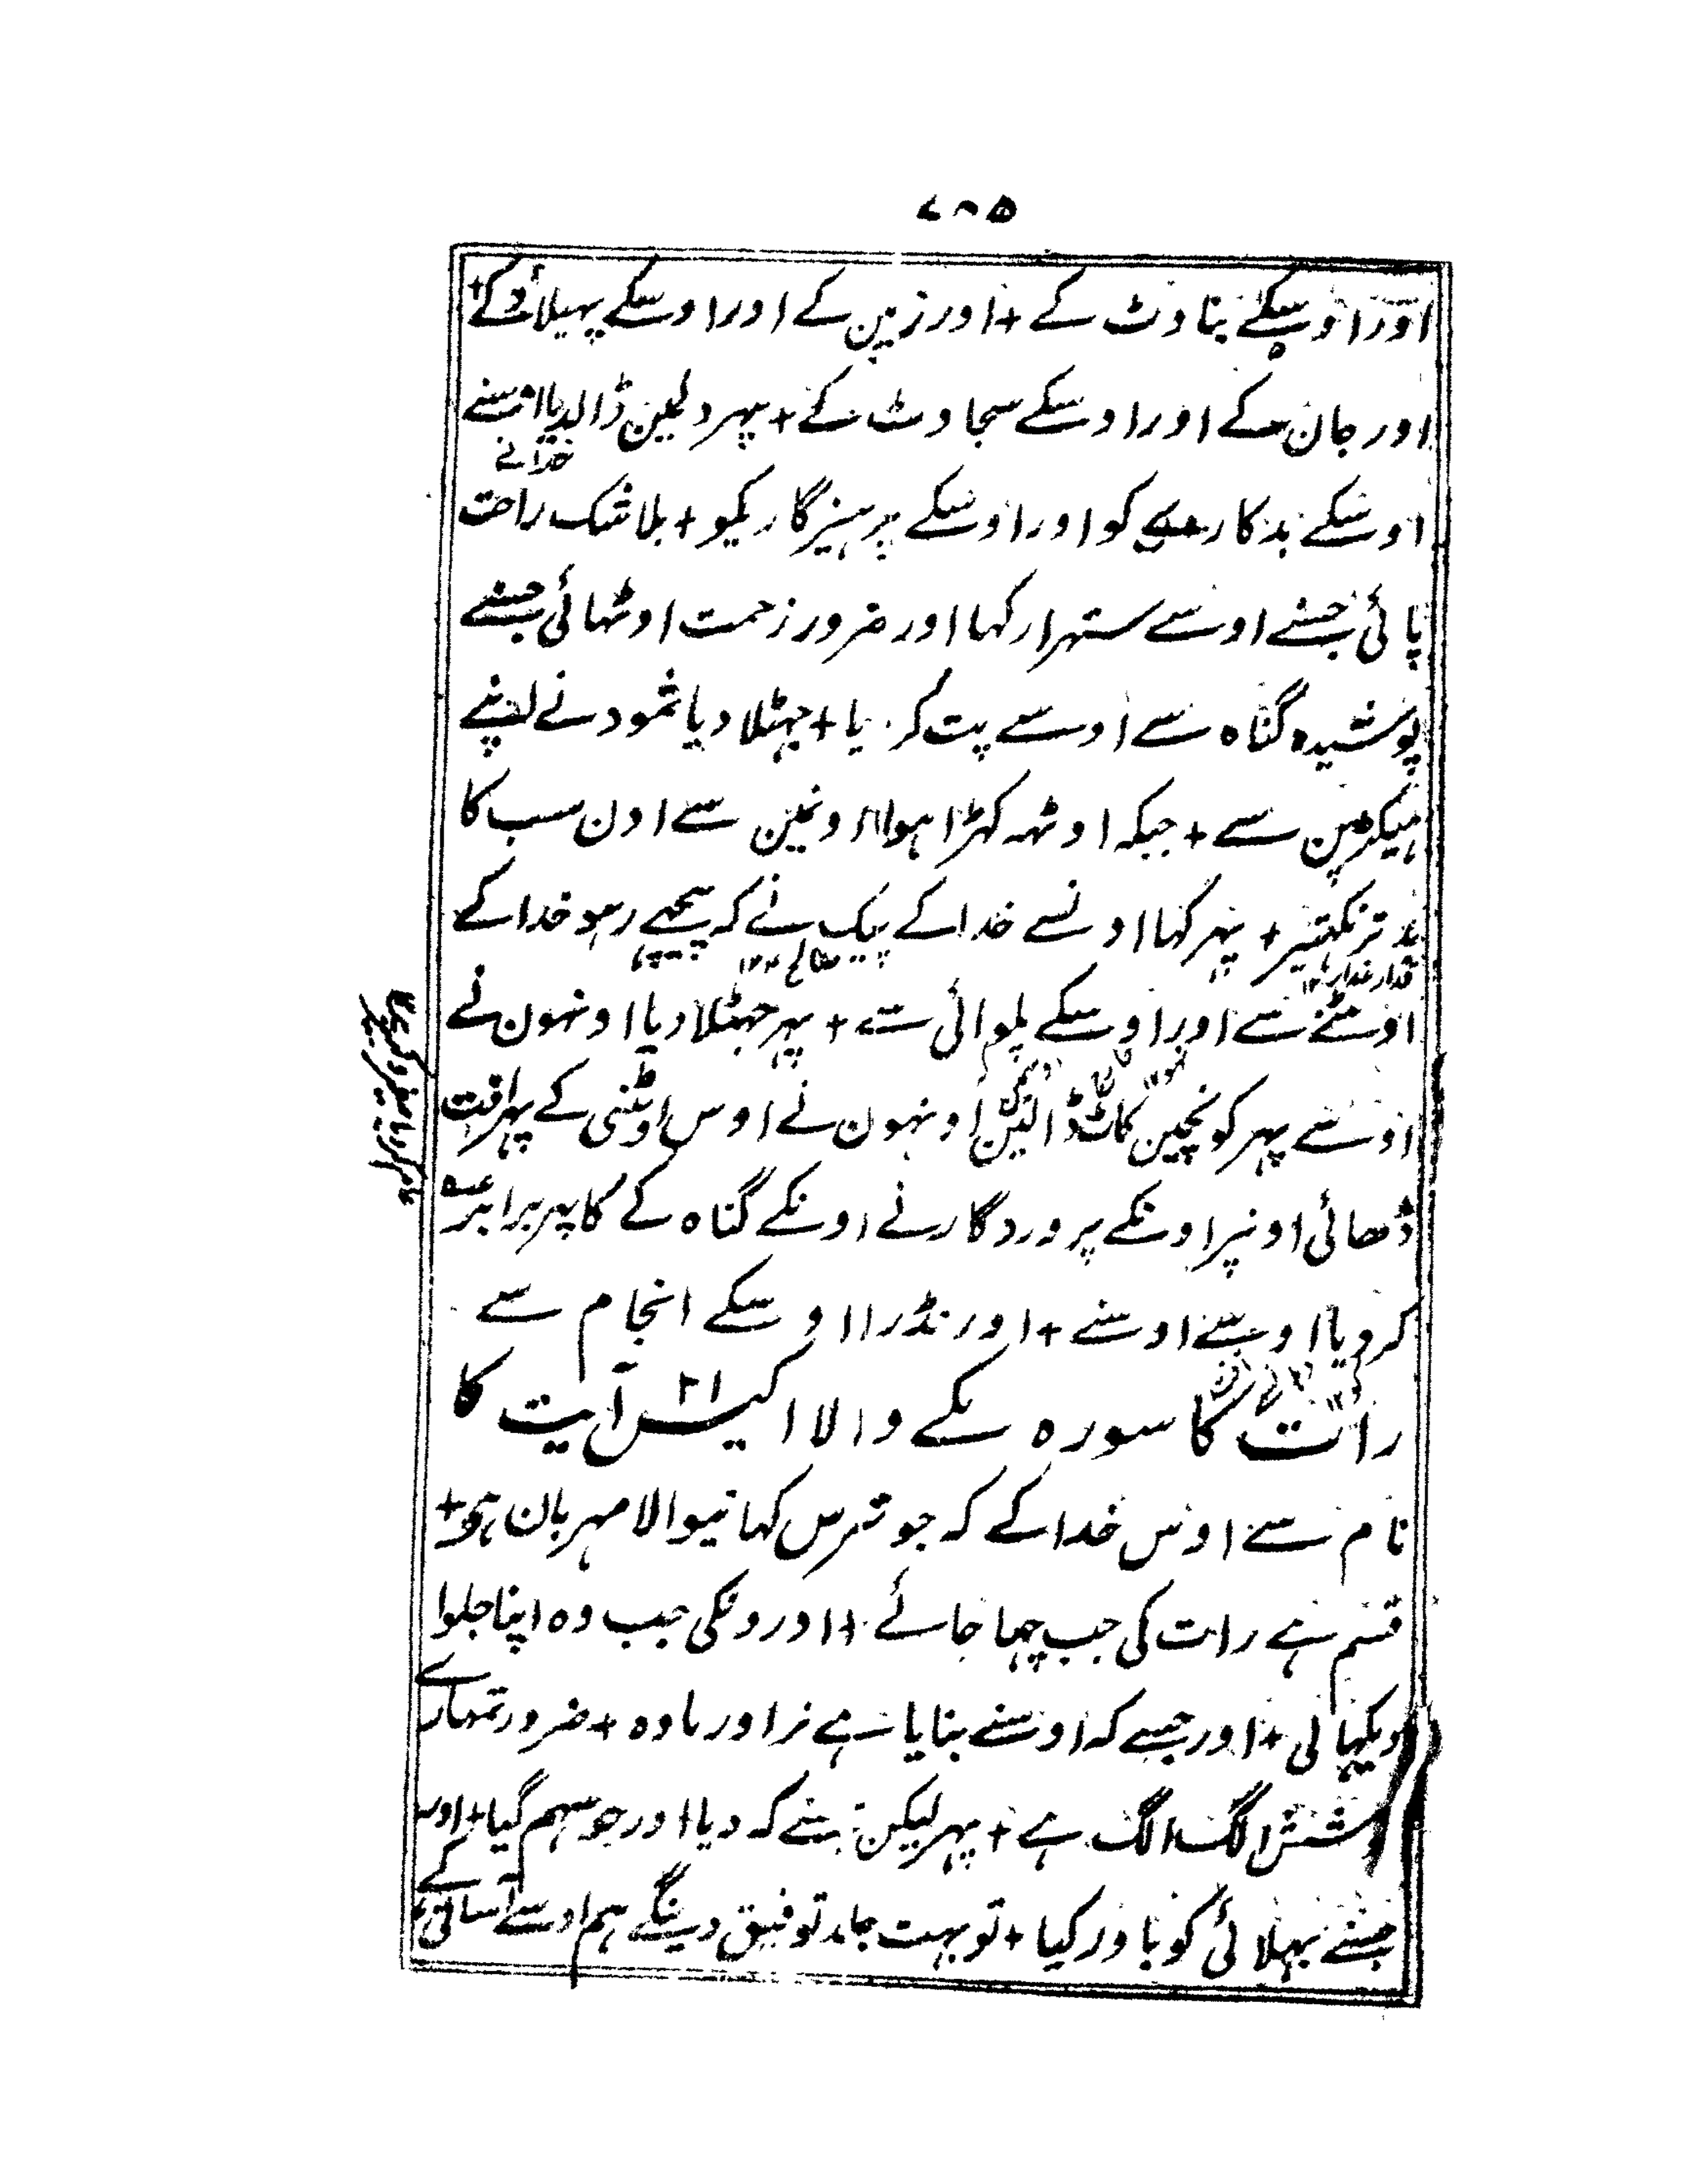 ۷۸۵
اور اوسکے بناوٹ کے + اور زمین کے اور اوسکے پہیلاؤ کے +
اور جان کے اور اوسکے سجاوٹ کے + پہر دلمین ڈالدیا اوسنے
خدا نے
اوسکے بدکاری کو اور اوسکے پرہیزگاریکو + بلاشک راحت
پائی جسنے اوسے ستہرا رکہا اور ضرور زحمت اوٹہائی جسنے
پوشیدہ گناہ سے اوسے پت کر دیا + جہٹلا دیا ثمود نے اپنے
ہیکڑپن سے + جبکہ اوٹہہ کہڑا ہوا اونمین سے اون سب کا
بدتر نکہتیر + پہر کہا اونسے خدا کے پیک نے کہ پیچہے رہو خدا کے
صالح ۱۲
اوٹنے سے اور اوسکے پلوائی سے + پہر جہٹلا دیا اونہون نے
اوسے پہر کونچین کاٹ ڈالین اونہون نے اوس اوٹنی کے پہر آفت
ڈھائی اونپر اونکے پروردگار نے اونکے گناہ کے کا پہر برابر
کر دیا اوسے اوسنے + اور نڈرا اوسکے انجام سے
رات کا سورہ مکے والا اکیس ۲۱ آیت کا
نام سے اوس خدا کے کہ جو ترس کہانیوالا مہربان ہی +
قسم ہے رات کی جب چہا جائے + اور دنکی جب وہ اپنا جلوا
دیکہائی + اور جیسے کہ اوسنے بنایا ہے نر اور مادہ + ضرور تمہارے
کوشش الگ الگ ہے + پہر لیکن جسنے کہ دیا اور جو سہم گیا + اور
جسنے بہلائی کو باور کیا + تو بہت جلد توفیق دینگے ہم اوسے آسانی کے